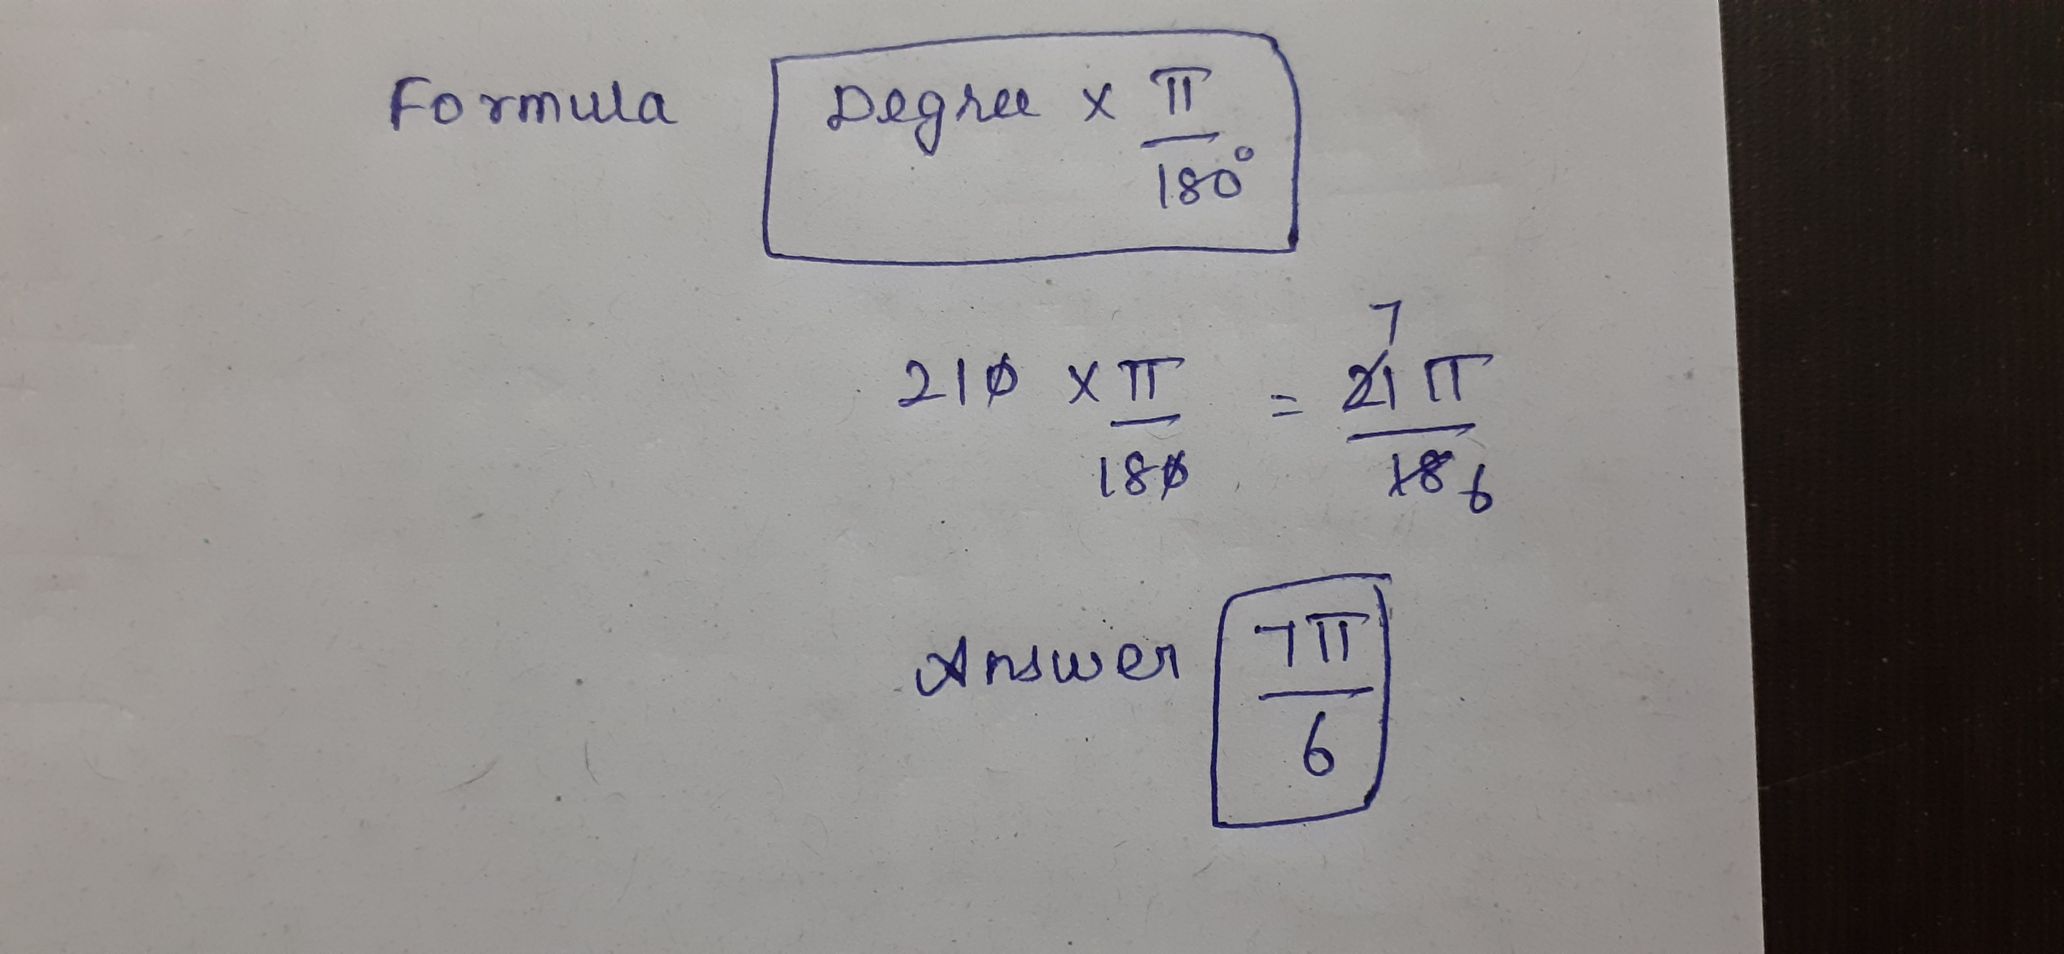 Formula Degree × π/180°
210 × π/180 = 21π/18 7 6
Answer 7π/6